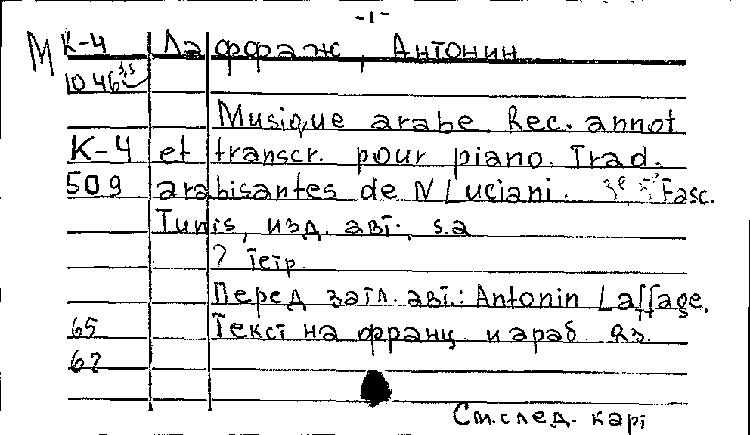 -1-
М К-4 Лаффраж, Антонин
1046
Musique arabe. Rec. annot
К-4 et transcr. pour piano. Trad.
509 arabisantes de N Luciani. Fasc.
Tunis, изд. авт., s.a
? тетр.
Перед загл. авт.: Antonin Laffage.
65 Текст на франц. и араб яз.
67
См. след. карт